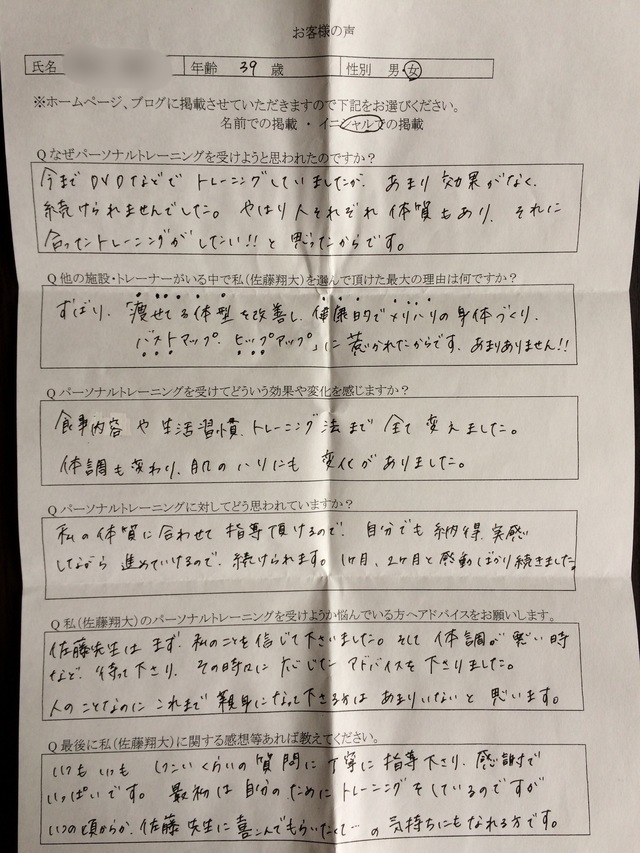 お客様の声
氏名 年齢 39 歳 性別 男・女
※ホームページ、ブログに掲載させていただきますので下記をお選びください。
名前での掲載 ・ イニシャルでの掲載
Q なぜパーソナルトレーニングを受けようと思われたのですか?
今まで DVDなどで トレーニングしていましたが、あまり 効果がなく、
続けられませんでした。 やはり 人それぞれ 体質もあり、それに
合ったトレーニングがしたい!! と 思ったからです。
Q 他の施設・トレーナーがいる中で私(佐藤翔大)を選んで頂けた最大の理由は何ですか?
ずばり、「痩せてる体型を改善し、健康的でメリハリの身体づくり、
バストアップ、ヒップアップ」に 惹かれたからです。あまりありません!!
Q パーソナルトレーニングを受けてどういう効果や変化を感じますか?
食事内容 や 生活習慣、トレーニング法まで 全て 変えました。
体調も変わり、 にも 変化がありました。
Q パーソナルトレーニングに対してどう思われていますか?
私の体質に合わせて 指導頂けるので、自分でも 納得、実感
しながら 進めていけるので、続けられます。1ヶ月、2ヶ月と感動ばかり続きました。
Q 私(佐藤翔大)のパーソナルトレーニングを受けようか悩んでいる方へアドバイスをお願いします。
佐藤先生は まず、私のことを信じて下さいました。そして 体調が 悪い時
など、待って下さり、その時々に 応じた アドバイスを 下さりました。
人のことなのに これまで 親身になって下さる方は あまりいないと 思います。
Q 最後に私(佐藤翔大)に関する感想等あれば教えてください。
いつも いつも しつこいくらいの 質問に 丁寧に 指導下さり、感謝で
いっぱいです。 最初は 自分のために トレーニングをしているのですが
いつの頃からか、佐藤先生に喜んでもらいたくて…の 気持ちにもなれる方です。